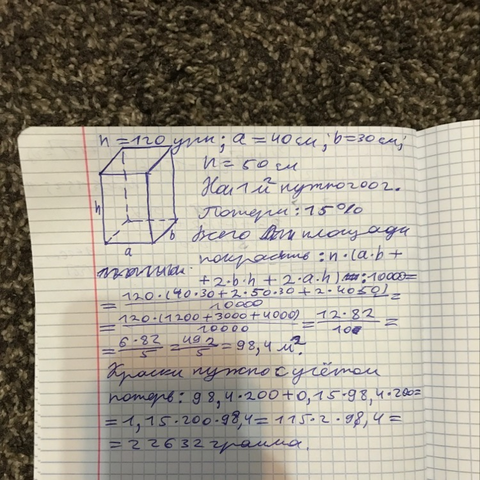 n = 120 урн; a = 40 см; b = 30 см;
h = 50 см
На 1 м² нужно 200г.
Потери: 15%
h
b
a
Всего площади
покрасить: n·(a·b+
+2·b·h+2·a·h) :10000=
= 120·(40·30+2·50·30+2·40·50) / 10000 =
= 120·(1200+3000+4000) / 10000 = 12·82 / 10 =
= 6·82 / 5 = 492 / 5 = 98,4 м².
Краски нужно с учётом
потерь: 98,4·200+0,15·98,4·200=
= 1,15·200·98,4 = 115·2·98,4 =
= 22632 грамма.